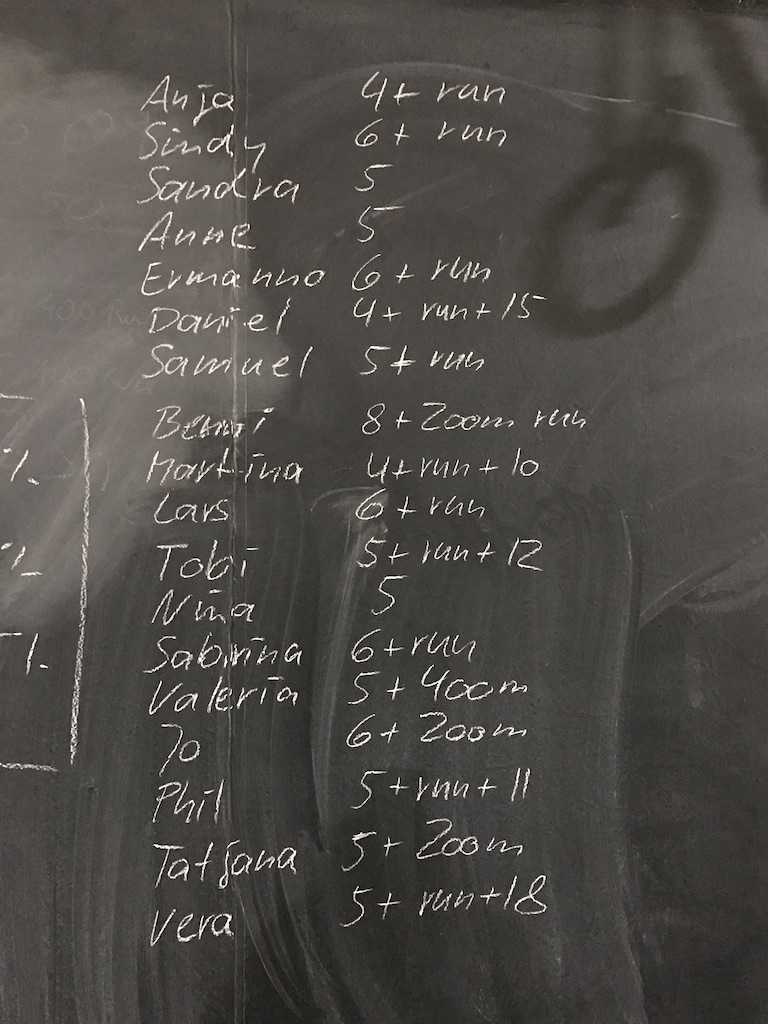 Anja 4+ run
Sindy 6+ run
Sandra 5
Anne 5
Ermanno 6+ run
Daniel 4+ run+15
Samuel 5+ run
Benni 8+200m run
Martina 4+run+10
Lars 6+run
Tobi 5+run+12
Nina 5
Sabrina 6+run
Valeria 5+400m
Jo 6+200m
Phil 5+run+11
Tatjana 5+200m
Vera 5+run+18
%
%
%